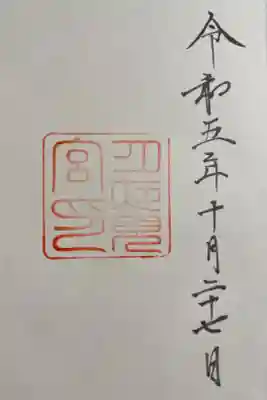 令和五年十月二十七日
宮印